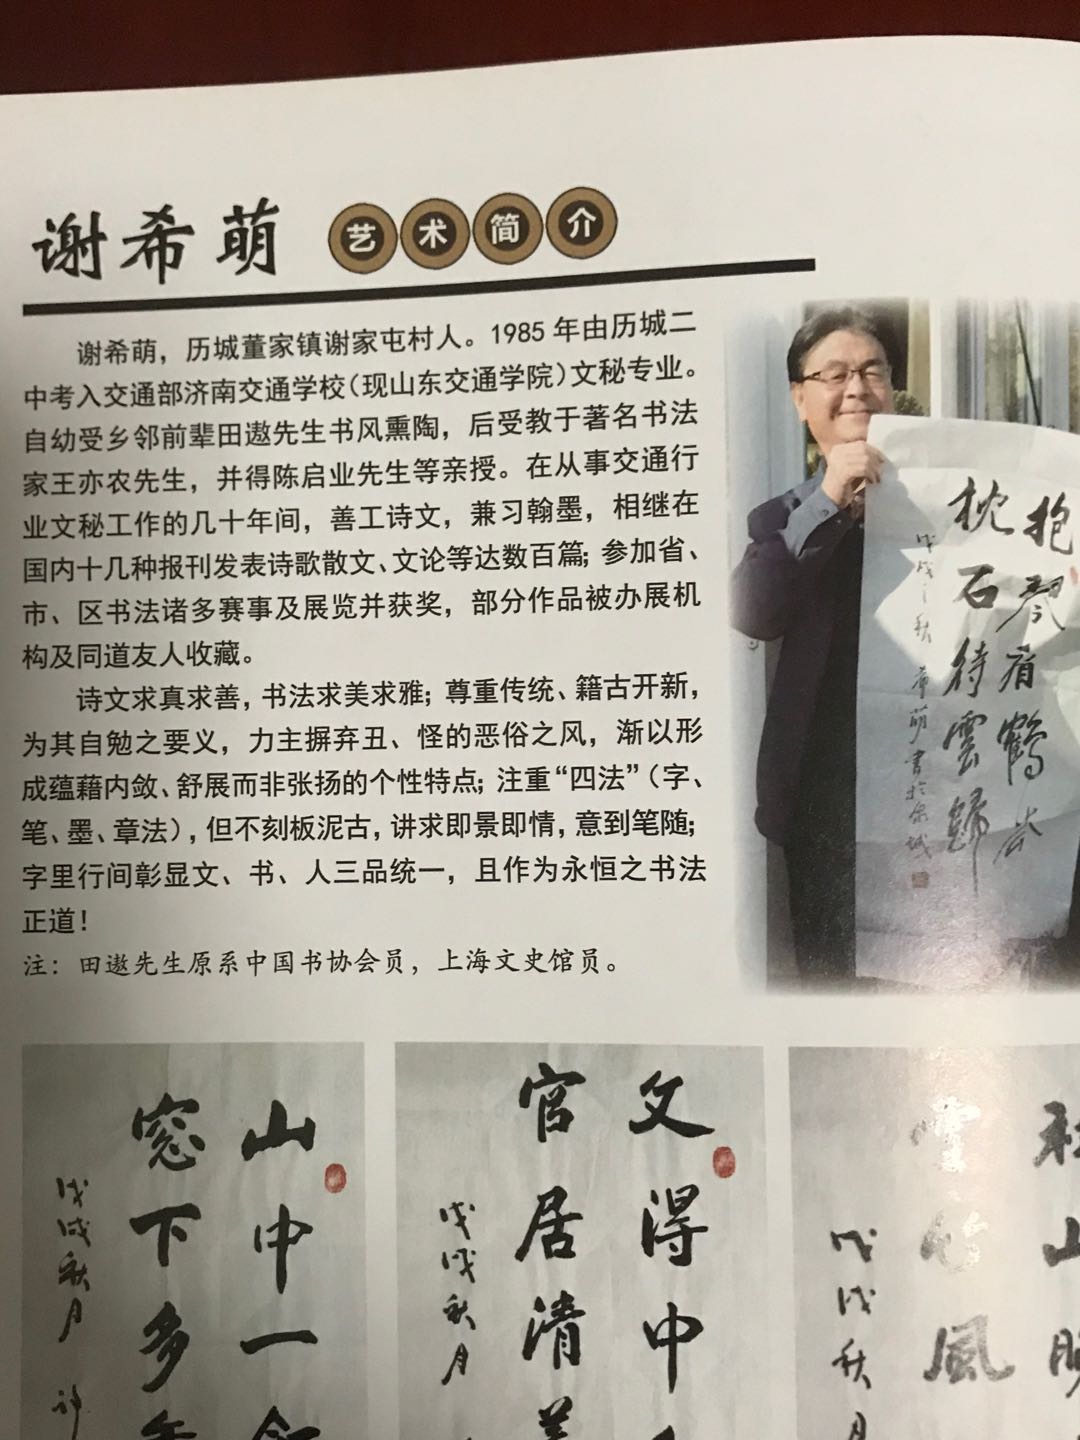 谢希萌 艺术简介
谢希萌，历城董家镇谢家屯村人。1985年由历城二
中考入交通部济南交通学校（现山东交通学院）文秘专业。
自幼受乡邻前辈田遨先生书风熏陶，后受教于著名书法
家王亦农先生，并得陈启业先生等亲授。在从事交通行
业文秘工作的几十年间，善工诗文，兼习翰墨，相继在
国内十几种报刊发表诗歌散文、文论等达数百篇；参加省、
市、区书法诸多赛事及展览并获奖，部分作品被办展机
构及同道友人收藏。
诗文求真求善，书法求美求雅；尊重传统、籍古开新，
为其自勉之要义，力主摒弃丑、怪的恶俗之风，渐以形
成蕴藉内敛、舒展而非张扬的个性特点；注重“四法”（字、
笔、墨、章法），但不刻板泥古，讲求即景即情，意到笔随；
字里行间彰显文、书、人三品统一，且作为永恒之书法
正道！
注：田遨先生原系中国书协会员，上海文史馆员。
抱琴看鹤
枕石待雲歸
戊戌之秋 希萌書於泉城
山中一
窓下多
戊戌秋月
文得中
官居清
戊戌秋月
山
風
戊戌秋月